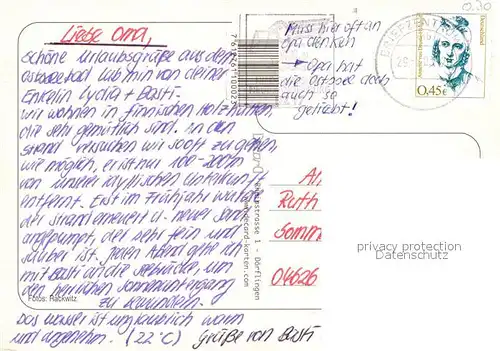 Liebe Oma,
schöne Urlaubsgrüße aus dem
Ostseebad Lubmin von deiner
Enkelin Lydia + Basti.
wir wohnen in finnischen Holzhütten,
die sehr gemütlich sind. in den
Strand versuchen wir so oft zu gehen,
wie möglich, er ist nur 100-200m
von unserer idyllischen Unterkunft
entfernt. Erst im Frühjahr wurde
der Strand erneuert u. neuer Sand
angepumpt, der sehr fein und
sauber ist. Jeden Abend gehe ich
mit Basti an die Seebrücke, um
den herrlichen Sonnenuntergang
zu bewundern.
Das Wasser ist unglaublich warm
und angenehm. (22°C) Grüße von Basti
Muss hier oft an
Opa denken
→ Opa hat
die Ostsee doch
auch so
geliebt!
7612671100025
BRIEFZENTRUM
Deutschland
0,45€
0.30
An
Ruth
Somm
04626
strasse 1 - Dörflingen
www.decard-karten.com
Fotos: Rackwitz
privacy protection
Datenschutz